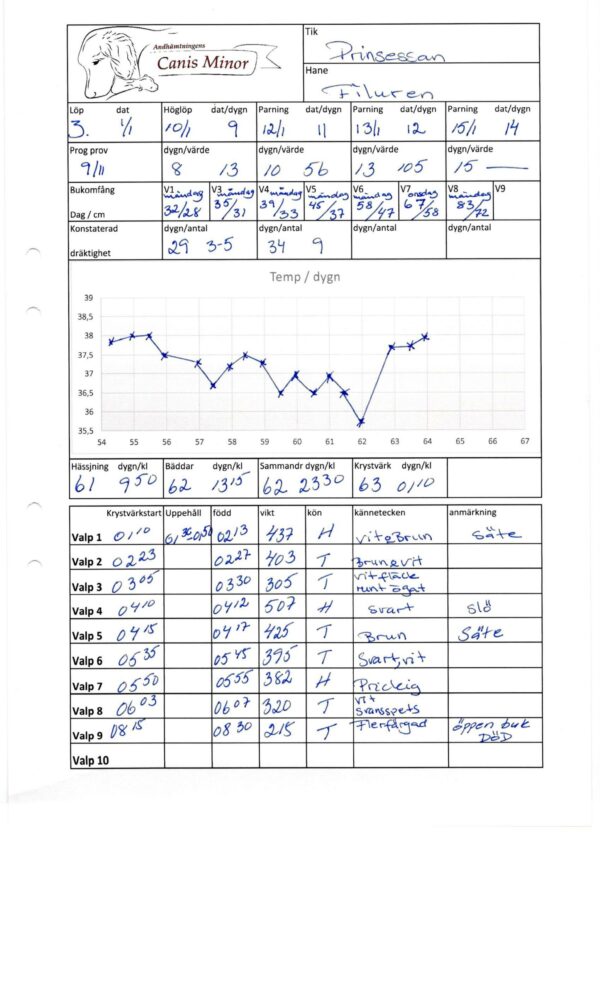 Andhämtningens
Canis Minor
Tik
Prinsessan
Hane
Filuren
Löp dat Höglöp dat/dygn Parning dat/dygn Parning dat/dygn Parning dat/dygn
3. 1/1 10/1 9 12/1 11 13/1 12 15/1 14
Prog prov dygn/värde dygn/värde dygn/värde dygn/värde
9/11 8 13 10 56 13 105 15 —
Bukomfång V1 måndag V3 måndag V4 måndag V5 måndag V6 måndag V7 onsdag V8 måndag V9
Dag / cm 32/28 35/31 39/33 45/37 58/47 67/58 83/72
Konstaterad dygn/antal dygn/antal dygn/antal dygn/antal
dräktighet 29 3-5 34 9
Temp / dygn
39
38,5
38
37,5
37
36,5
36
35,5
54 55 56 57 58 59 60 61 62 63 64 65 66 67
Hässjning dygn/kl Bäddar dygn/kl Sammandr dygn/kl Krystvärk dygn/kl
61 9 50 62 13 15 62 23 30 63 01 10
Krystvärkstart Uppehåll född vikt kön kännetecken anmärkning
Valp 1 01 10 0213 437 H vit&Brun Säte
Valp 2 02 23 0227 403 T Brun&vit
Valp 3 03 05 0330 305 T vit fläck runt ögat
Valp 4 04 10 0412 507 H svart Slö
Valp 5 04 15 04 17 425 T Brun Säte
Valp 6 05 35 05 45 395 T Svart,vit
Valp 7 05 50 0555 382 H Prickig
Valp 8 06 03 0607 320 T vit svansspets
Valp 9 08 15 08 30 215 T Flerfärgad öppen buk DÖD
Valp 10